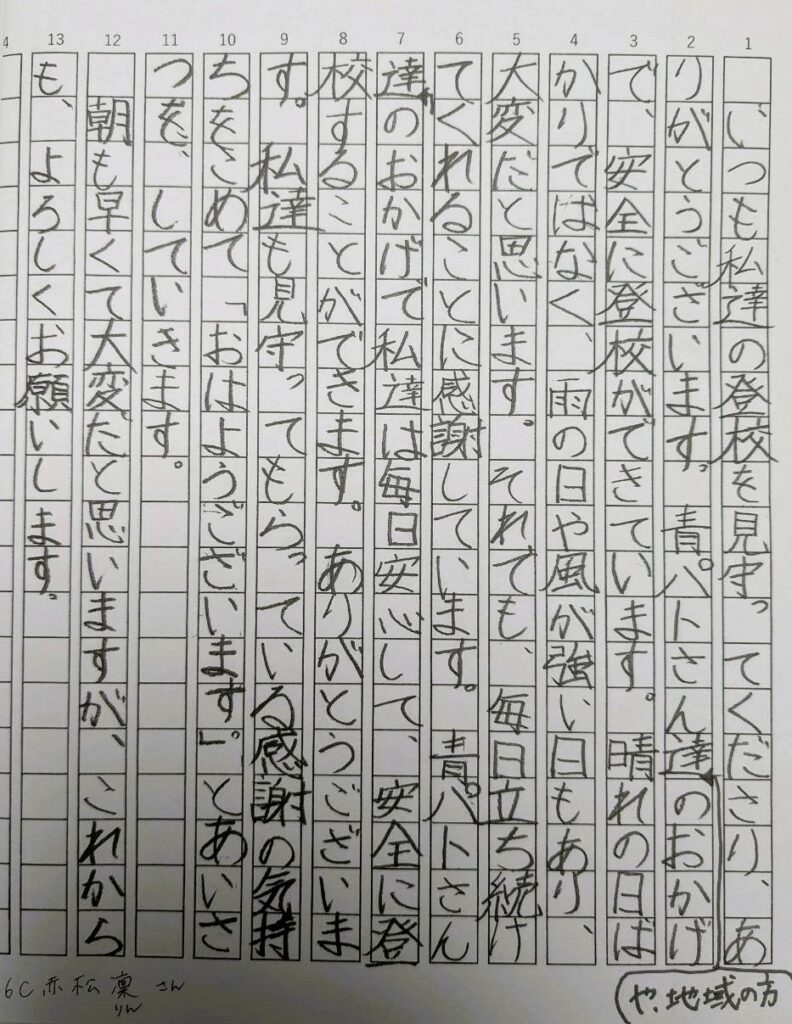 1
いつも私達の登校を見守ってくださり、あ
2
りがとうございます。青パトさん達のおかげ
や、地域の方
3
で、安全に登校ができています。晴れの日ば
4
かりではなく、雨の日や風が強い日もあり、
5
大変だと思います。それでも、毎日立ち続け
6
てくれることに感謝しています。青パトさん
7
達のおかげで私達は毎日安心して、安全に登
8
校することができます。ありがとうございま
9
す。私達も見守ってもらっている感謝の気持
10
ちをこめて「おはようございます」。とあいさ
11
つを、していきます。
12
朝も早くて大変だと思いますが、これから
13
も、よろしくお願いします。
4
6C赤松凜さん
りん